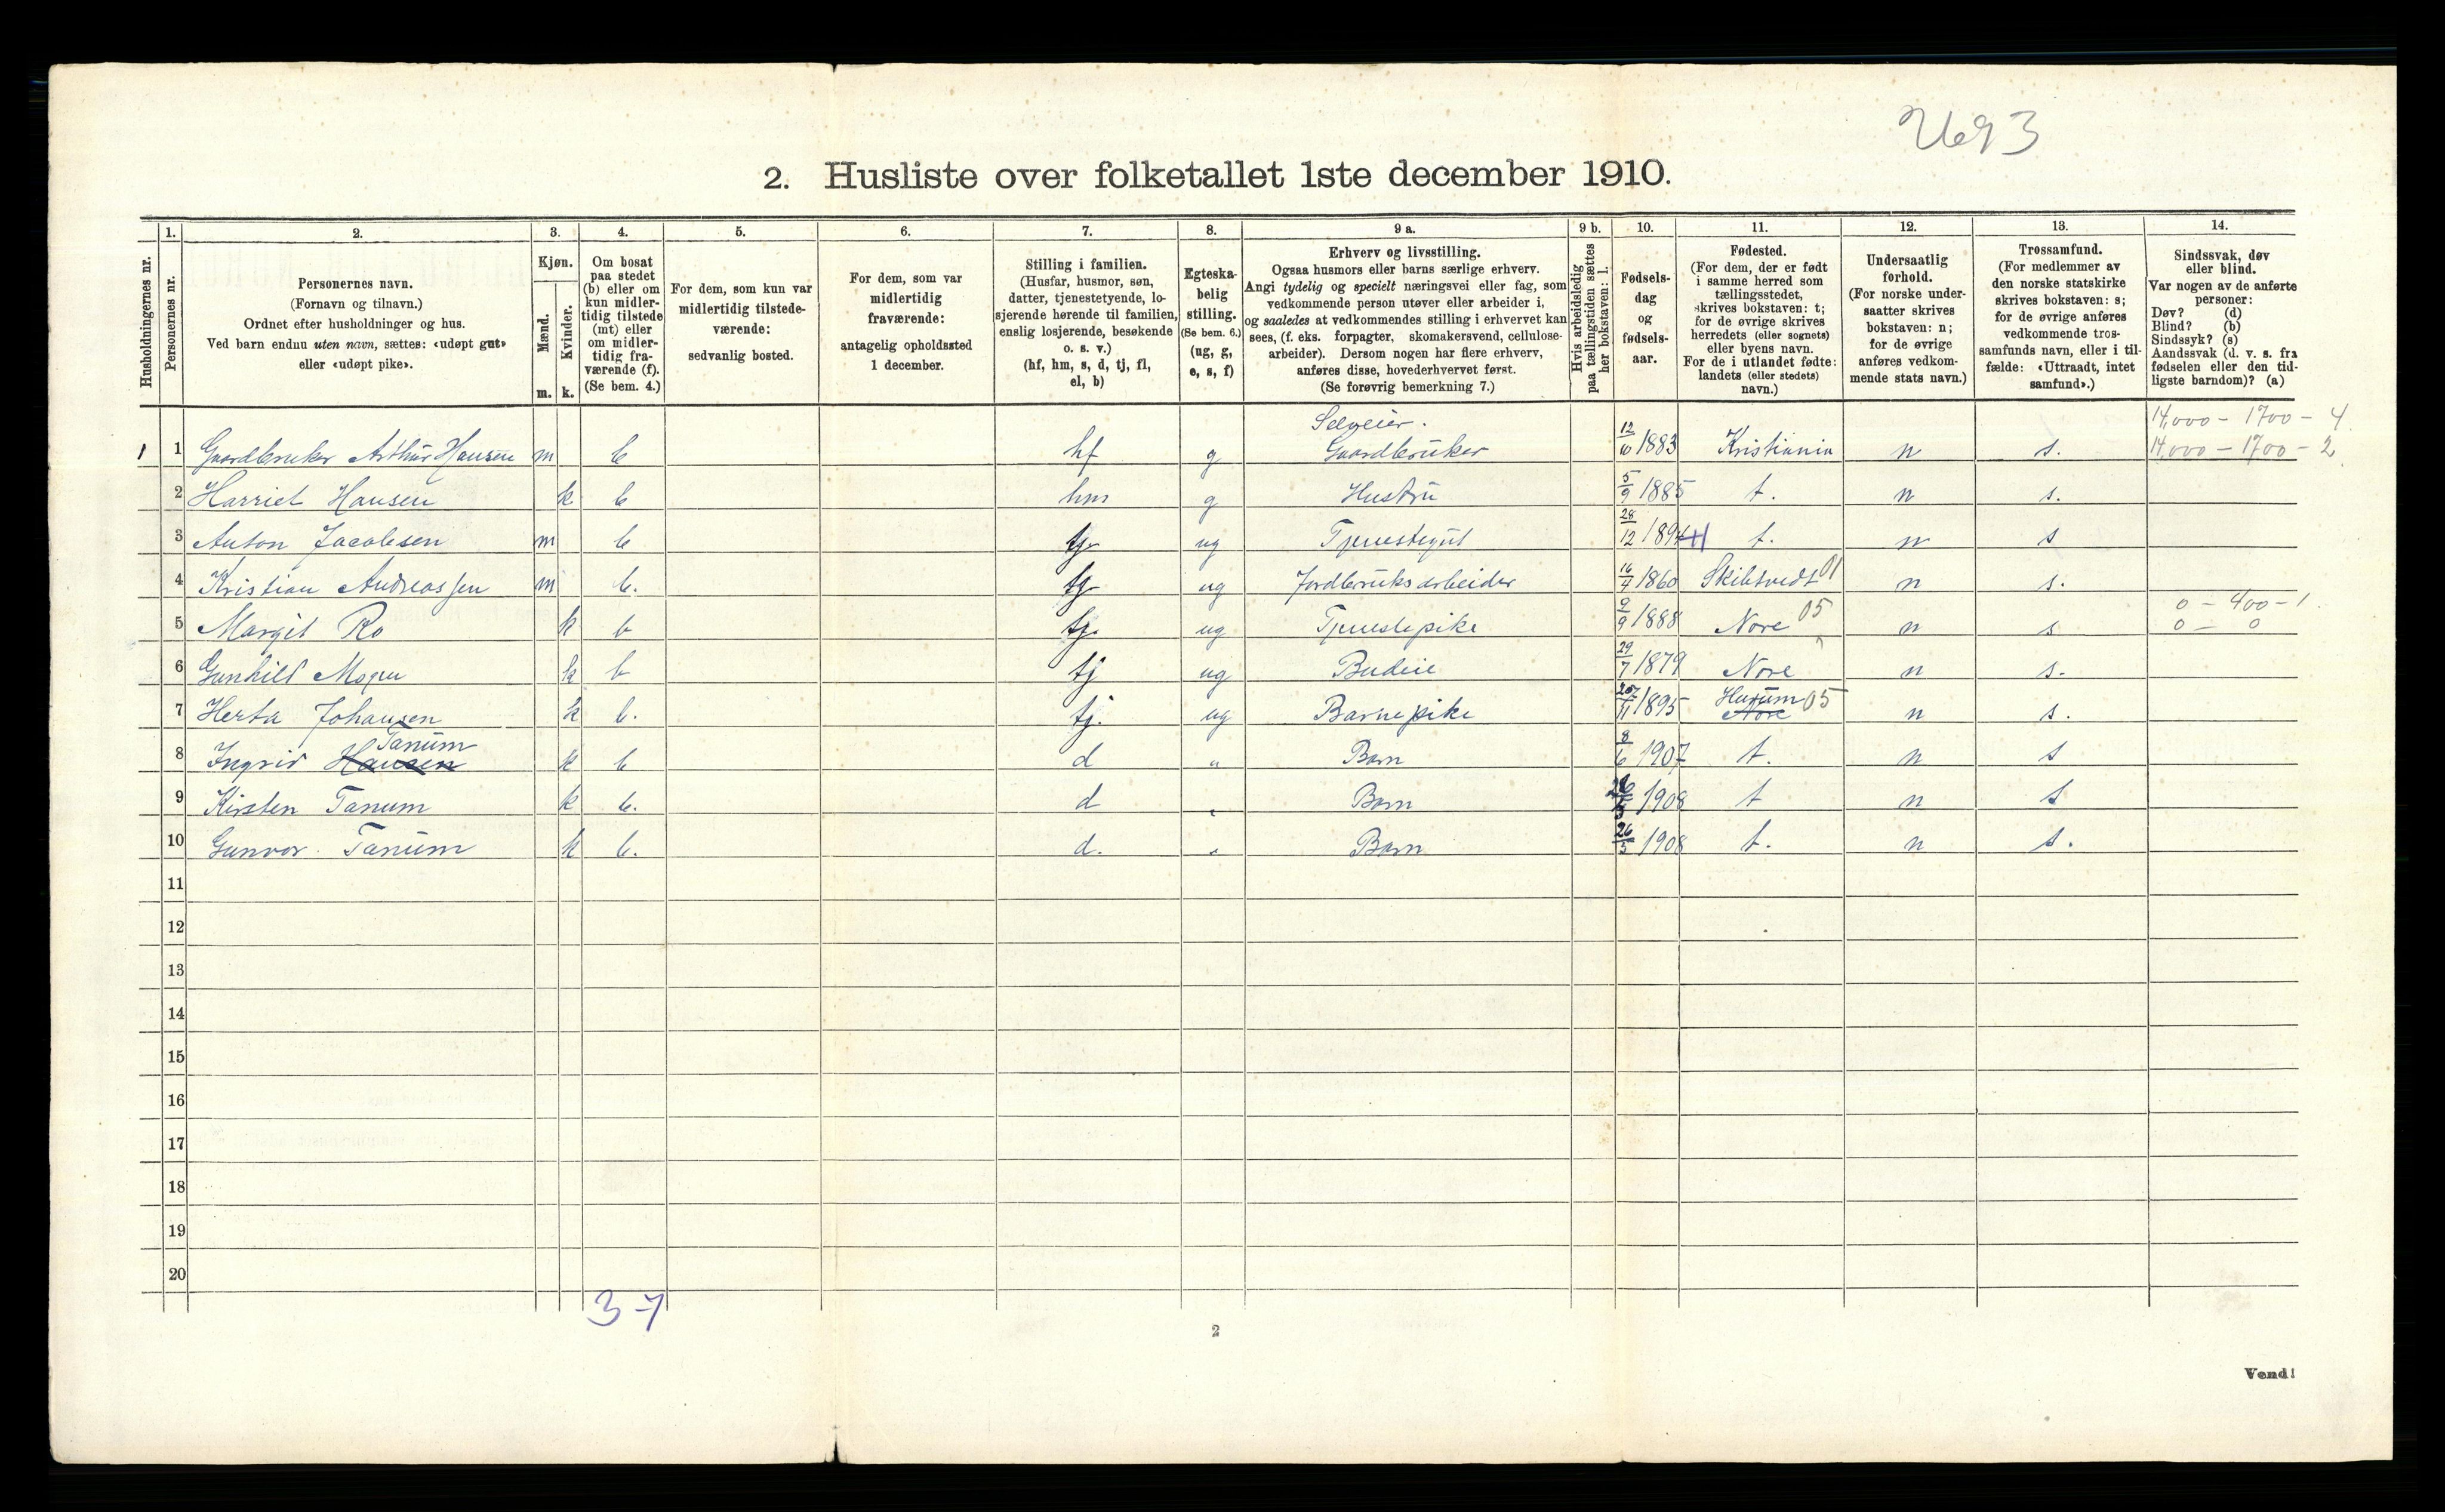 2. Husliste over folketallet 1ste december 1910.
Husholdningernes nr.
1. Personernes nr.
2. Personernes navn.
(Fornavn og tilnavn.)
Ordnet efter husholdninger og hus.
Ved barn endnu uten navn, sættes: «udøpt gut»
eller «udøpt pike».
3. Kjøn.
Mænd. m.
Kvinder. k.
4. Om bosat
paa stedet
(b) eller om
kun midler-
tidig tilstede
(mt) eller
om midler-
tidig fra-
værende (f).
(Se bem. 4.)
5. For dem, som kun var
midlertidig tilstede-
værende:
sedvanlig bosted.
6. For dem, som var
midlertidig
fraværende:
antagelig opholdssted
1 december.
7. Stilling i familien.
(Husfar, husmor, søn,
datter, tjenestetyende, lo-
sjerende hørende til familien,
enslig losjerende, besøkende
o. s. v.)
(hf, hm, s, d, tj, fl,
el, b)
8. Egteska-
belig
stilling.
(Se bem. 6.)
(ug, g,
e, s, f)
9 a. Erhverv og livsstilling.
Ogsaa husmors eller barns særlige erhverv.
Angi tydelig og specielt næringsvei eller fag, som
vedkommende person utøver eller arbeider i,
og saaledes at vedkommendes stilling i erhvervet kan
sees, (f. eks. forpagter, skomakersvend, cellulose-
arbeider). Dersom nogen har flere erhverv,
anføres disse, hovederhvervet først.
(Se forøvrig bemerkning 7.)
9 b. Hvis arbeidsledig
paa tællingstiden sættes
her bokstaven: l.
10. Fødsels-
dag
og
fødsels-
aar.
11. Fødested.
(For dem, der er født
i samme herred som
tællingsstedet,
skrives bokstaven: t;
for de øvrige skrives
herredets (eller sognets)
eller byens navn.
For de i utlandet fødte:
landets (eller stedets)
navn.)
12. Undersaatlig
forhold.
(For norske under-
saatter skrives
bokstaven: n;
for de øvrige
anføres vedkom-
mende stats navn.)
13. Trossamfund.
(For medlemmer av
den norske statskirke
skrives bokstaven: s;
for de øvrige anføres
vedkommende tros-
samfunds navn, eller i til-
fælde: «Uttraadt, intet
samfund».)
14. Sindssvak, døv
eller blind.
Var nogen av de anførte
personer:
Døv? (d)
Blind? (b)
Sindssyk? (s)
Aandssvak (d. v. s. fra
fødselen eller den tid-
ligste barndom)? (a)
Selveier. 14,000 - 1700 - 4
1 1 Gaardbruker Arthur Hansen m b hf g Gaardbruker 12/10 1883 Kristiania n s. 14,000 - 1700 - 2
2 Harriet Hansen k b hm g Hustru 5/9 1885 t. n s.
3 Anton Jacobsen m b tj ug Tjenestegut 28/12 1894 t. n s
4 Kristian Andreassen m b. tj ug Jordbruksarbeider 16/4 1860 Skibtvedt 01 n s.
0 - 400 - 1
5 Margit Ro k b tj. ug Tjenestepike 9/9 1888 Nore 05 n s 0 - 0
6 Gunhild Mogen k b tj ug Budeie 29/7 1879 Nore n s.
Hurum 05
7 Herta Johansen k b. tj. ug Barnepike 11 1895 Nore n s.
Tanum
8 Ingrid Hansen k b d " Barn 8/6 1907 t. n s
9 Kirsten Tanum k b. d " Barn 1908 t n s
10 Gunvor Tanum k b. d. " Barn 26/5 1908 t. n s.
11
12
13
14
15
16
17
18
19
20
3-7
2
Vend!